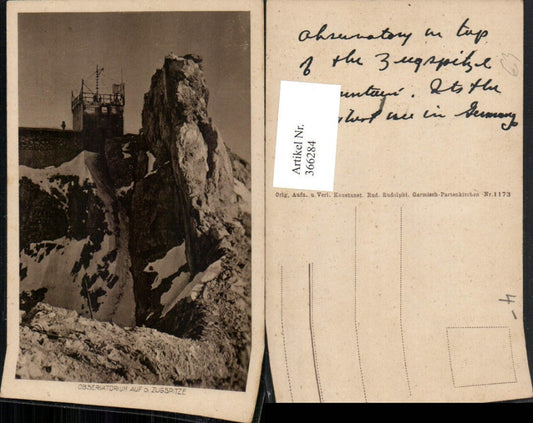 OBSERVATORIUM AUF D. ZUGSPITZE
Observatory on top
of the Zugspitze
mountain. Its the
one in Germany
Artikel Nr.
366284
Orig. Aufn. u. Verl. Kunstanst. Rud. Rudolphi, Garmisch-Partenkirchen Nr. 1173